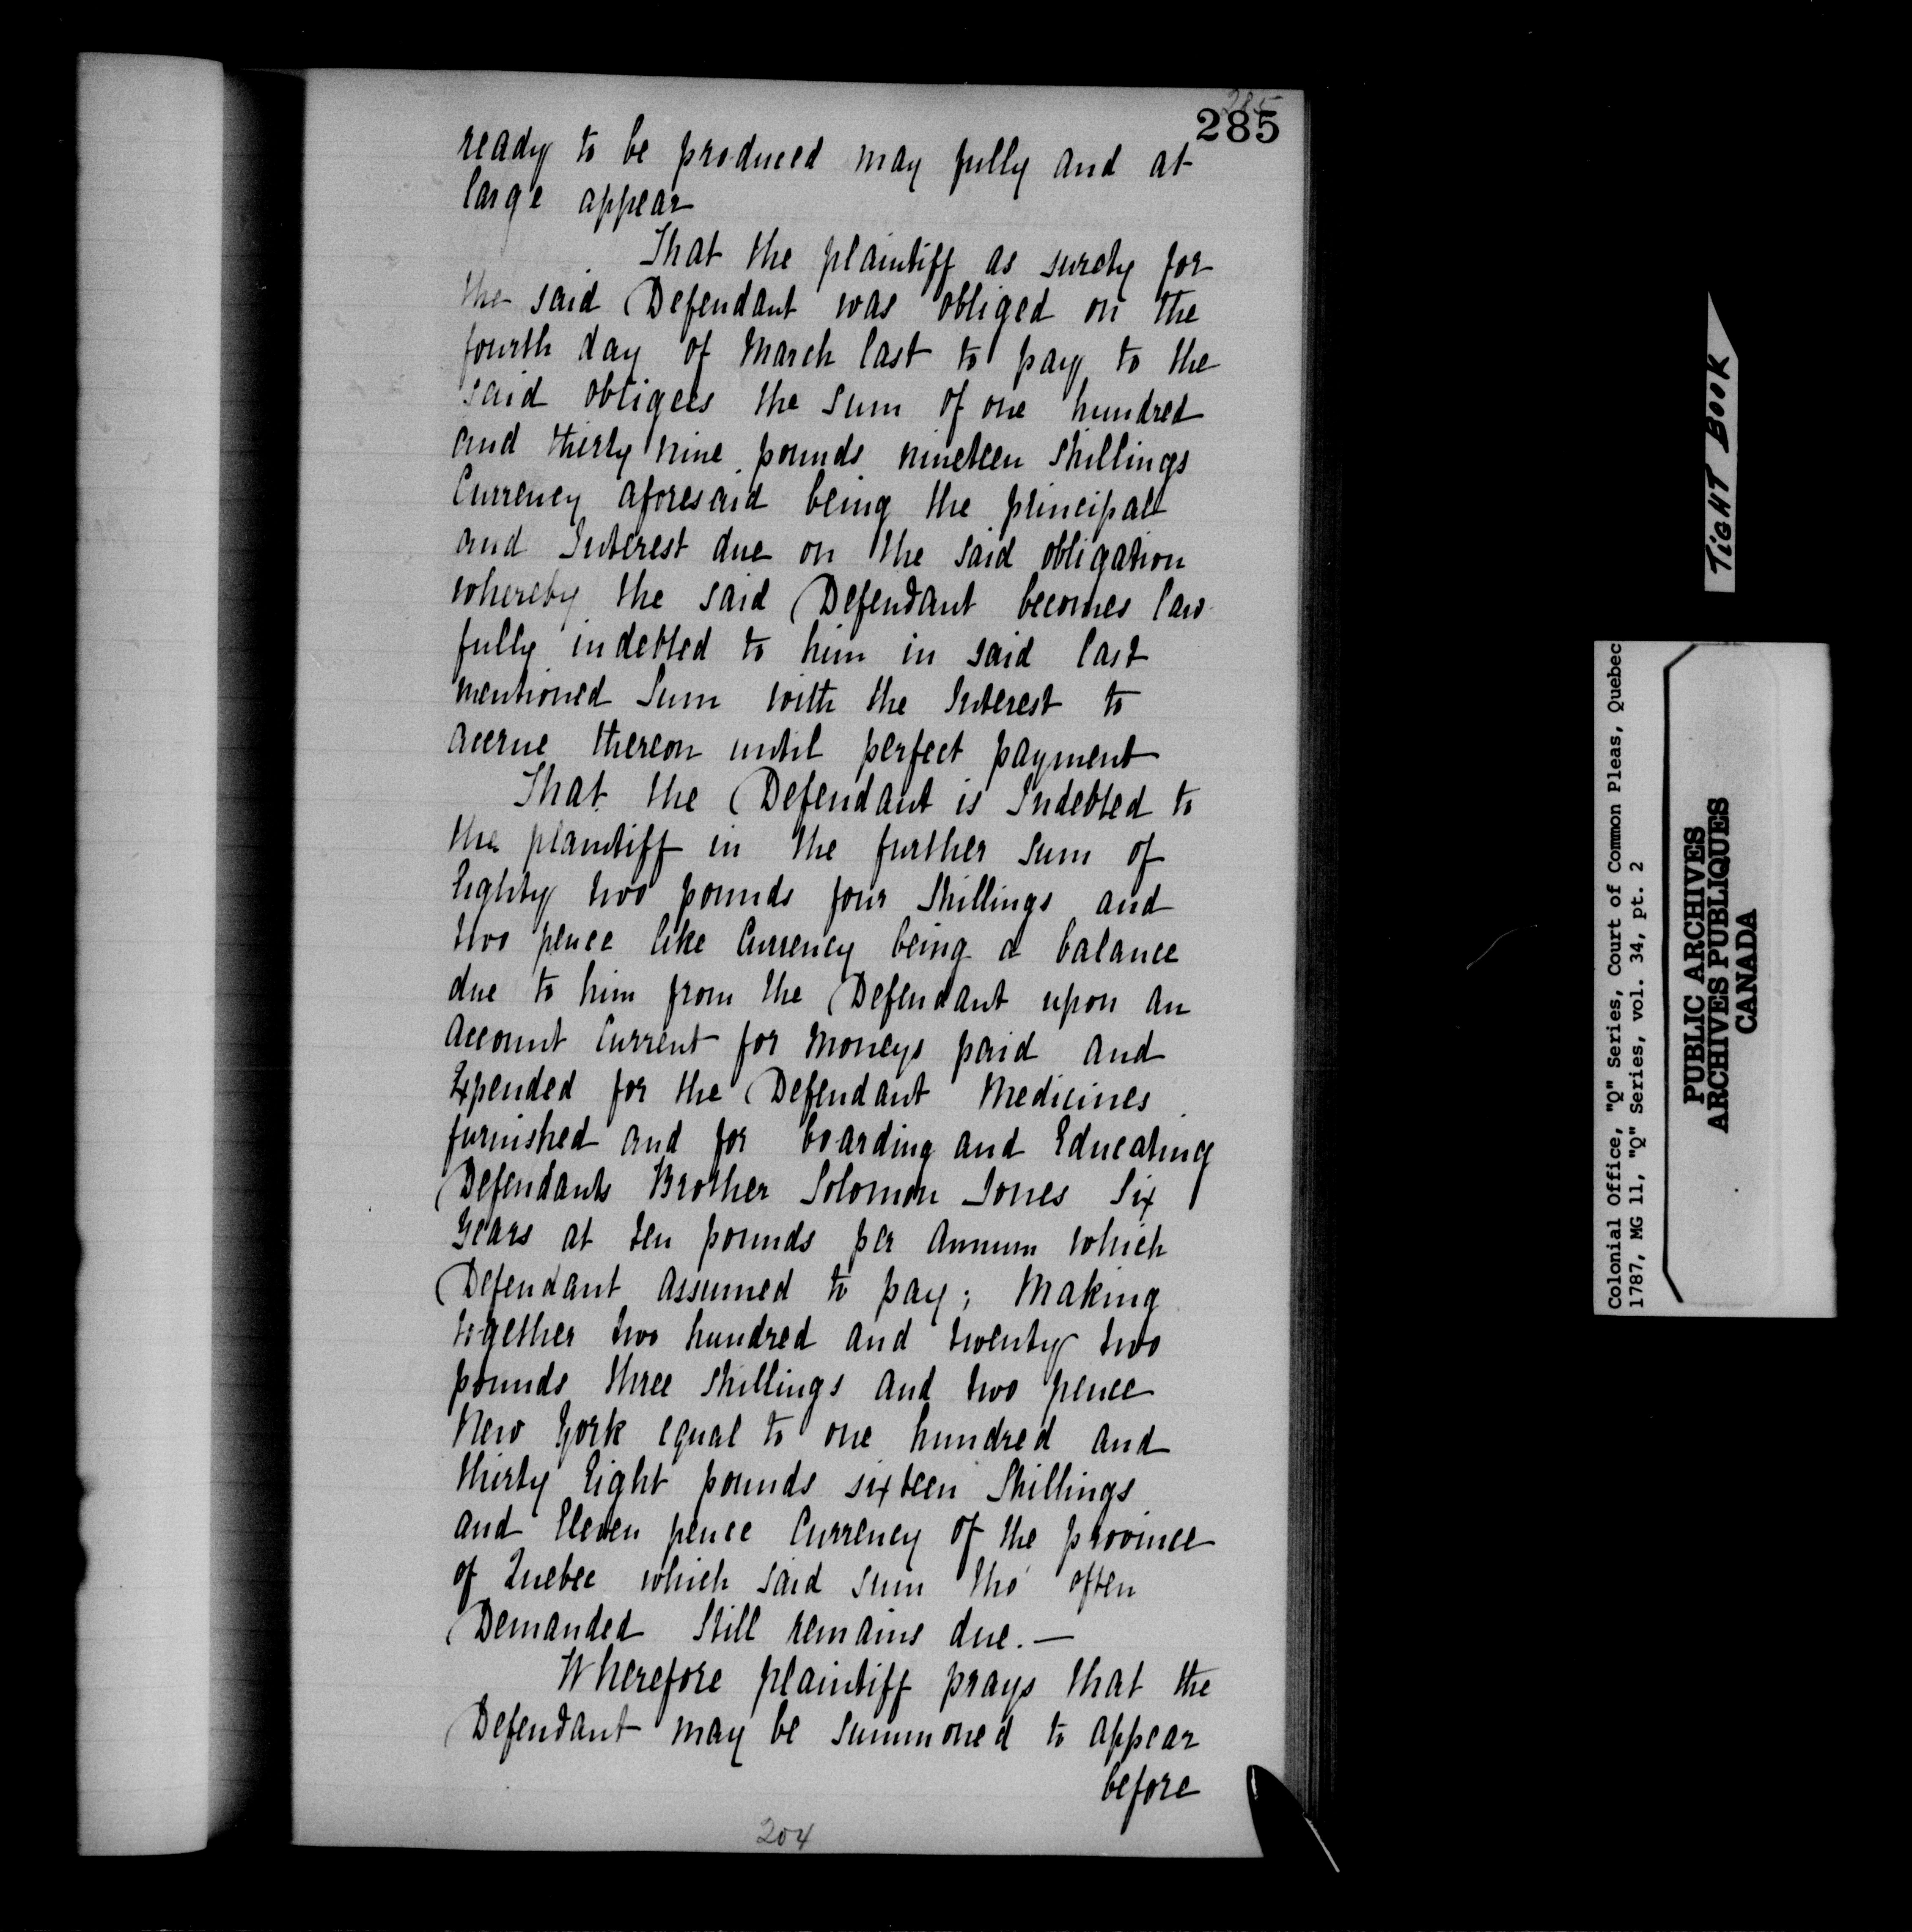 285
285
ready to be produced may fully and at
large appear
That the plaintiff as surety for
the said Defendant was obliged on the
fourth day of March last to pay to the
said obligees the sum of one hundred
and thirty nine pounds nineteen shillings
Currency aforesaid being the principal
and Interest due on the said obligation
whereby the said Defendant becomes law
fully indebted to him in said last
mentioned Sum with the Interest to
accrue thereon until perfect payment
That the Defendant is Indebted to
the plaintiff in the further sum of
Eighty two pounds four Shillings and
two pence like Currency being a balance
due to him from the Defendant upon an
Account Current for Moneys paid and
Expended for the Defendant Medicines
furnished and for boarding and Educating
Defendants Brother Solomon Jones Six
Years at ten pounds per Annum which
Defendant assumed to pay; Making
together two hundred and twenty two
pounds three shillings and two pence
New York equal to one hundred and
thirty Eight pounds sixteen Shillings
and Eleven pence Currency of the province
of Quebec which said sum tho' often
Demanded Still remains due. —
Wherefore plaintiff prays that the
Defendant may be summoned to appear
before
204
TIGHT BOOK
Colonial Office, "Q" Series, Court of Common Pleas, Quebec
1787, MG 11, "Q" Series, vol. 34, pt. 2
PUBLIC ARCHIVES
ARCHIVES PUBLIQUES
CANADA